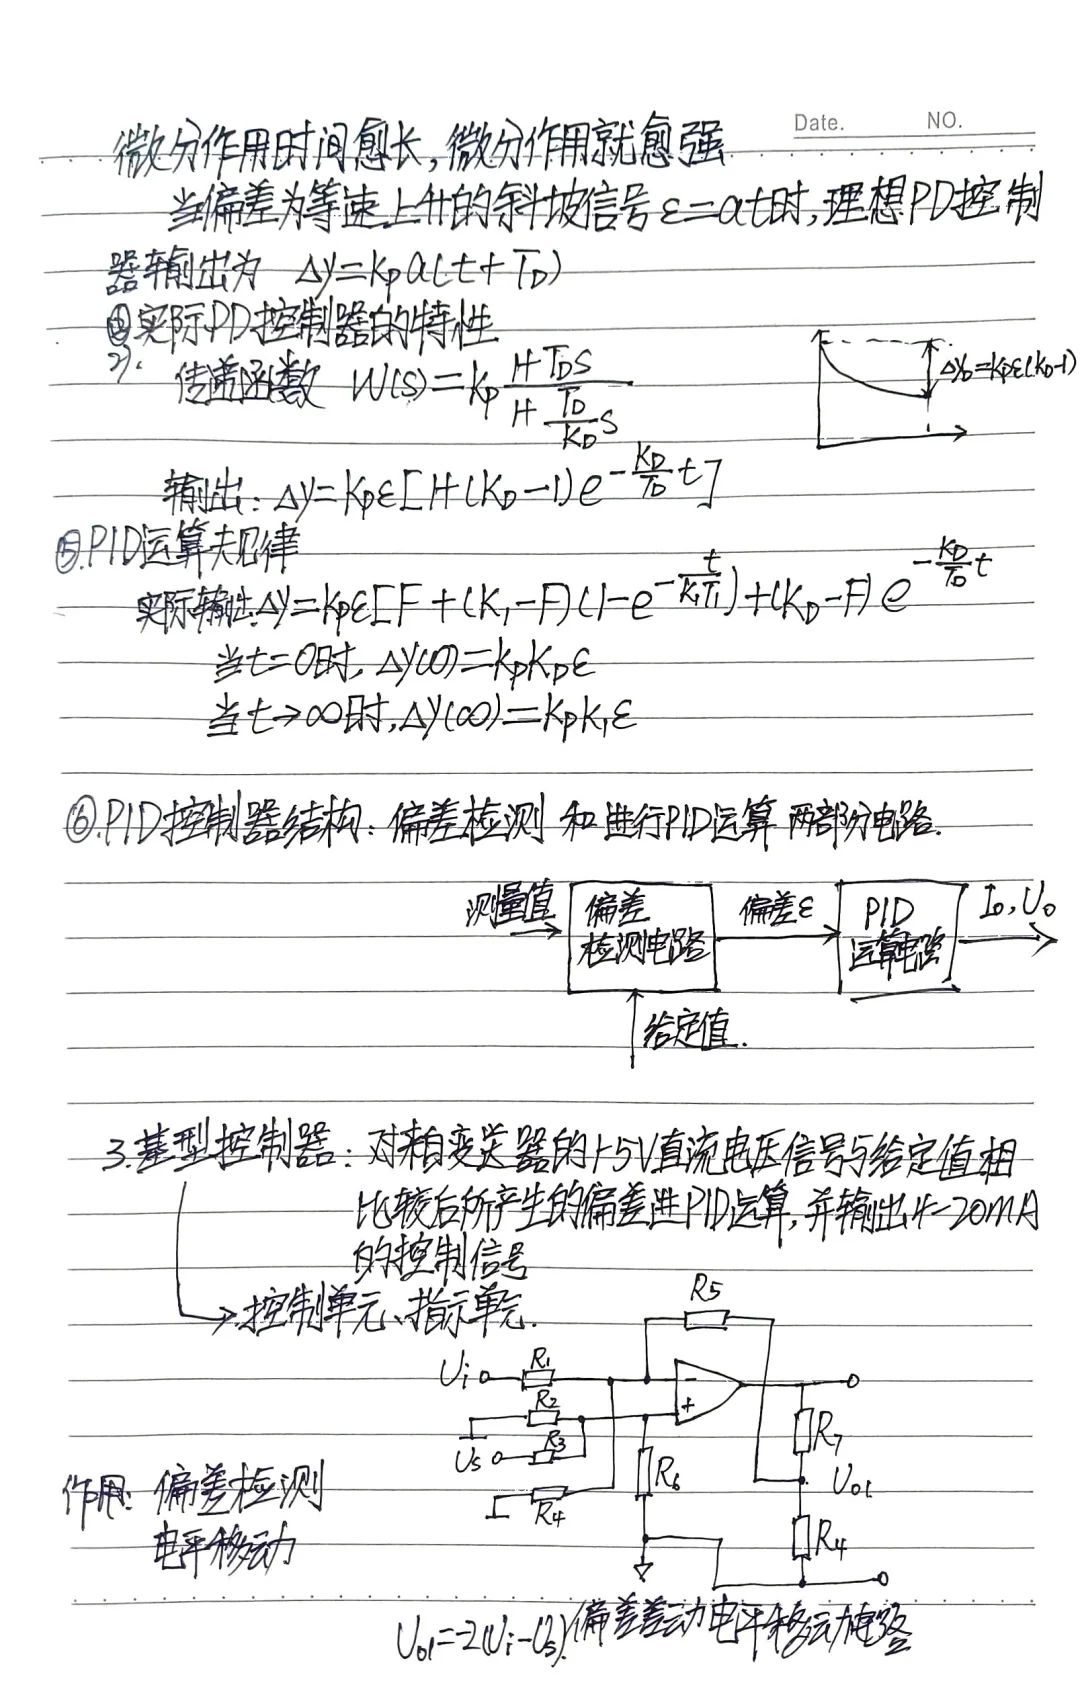 Date. NO.
微分作用时间愈长,微分作用就愈强
当偏差为等速上升的斜坡信号ε=at时,理想PD控制
器输出为 Δy=Kpa(t+TD)
④实际PD控制器的特性
传递函数 W(S)=Kp (1+TDS)/(1+(TD/KD)S)
ΔyD=Kpε(KD-1)
输出:Δy=Kpε[1+(KD-1)e^(-(KD/TD)t)]
⑤.PID运算规律
实际输出:Δy=Kpε[F+(K1-F)(1-e^(-t/(K1T1)))+(KD-F)e^(-(KD/TD)t)
当t=0时,Δy(0)=KpKDε
当t→∞时,Δy(∞)=KpK1ε
⑥.PID控制器结构:偏差检测和进行PID运算两部分电路.
测量值 偏差 偏差ε PID I0,U0
检测电路 运算电路
给定值.
3.基型控制器:对来自变送器的1-5V直流电压信号与给定值相
比较后所产生的偏差进PID运算,并输出4-20mA
的控制信号
→控制单元、指示单元.
R5
Ui R1
R2 - +
Us R3 R7
R6 U01
R4 R4
作用:偏差检测
电平移动
U01=-2(Ui-Us).偏差差动电平移动电路